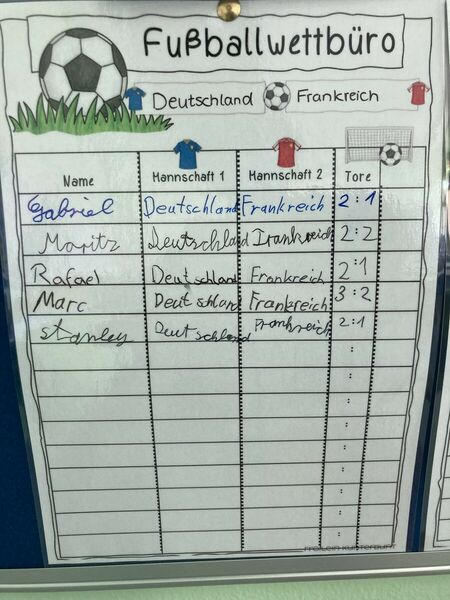 Fußballwettbüro
Deutschland Frankreich
Name Mannschaft 1 Mannschaft 2 Tore
Gabriel Deutschland Frankreich 2:1
Moritz Deutschland Frankreich 2:2
Rafael Deutschland Frankreich 2:1
Marc Deutschland Frankreich 3:2
Stanley Deutschland Frankreich 2:1
:
:
:
:
:
:
:
:
:
FREILEIN KUNTERBUNT